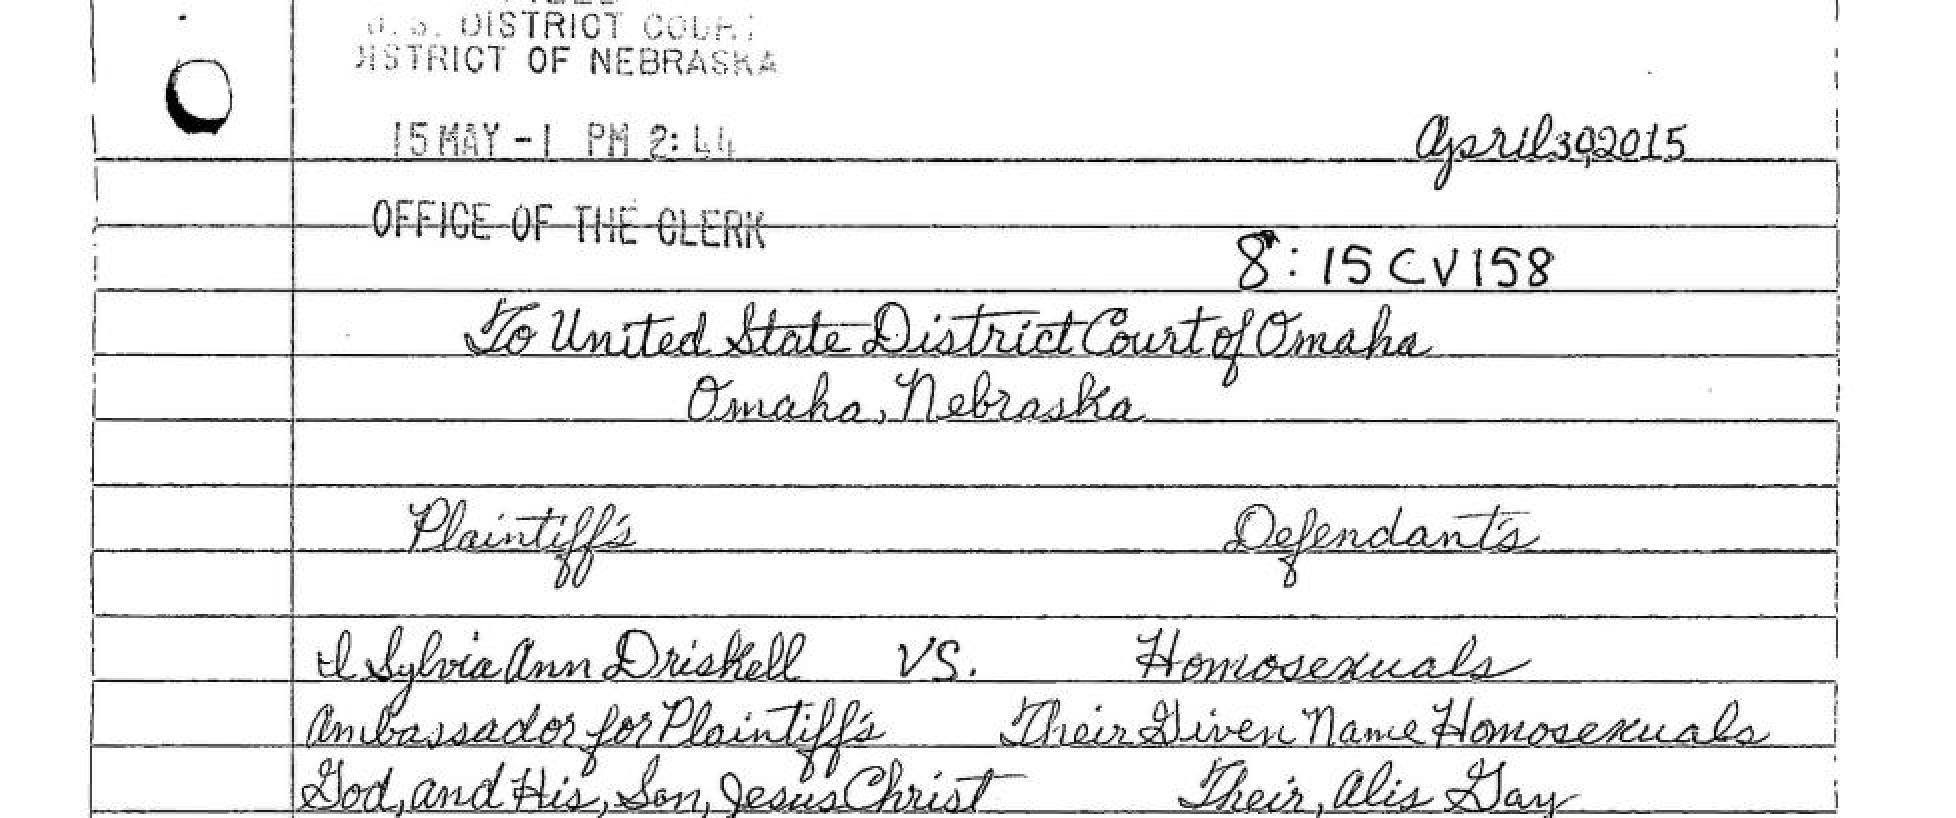 U.S. DISTRICT COURT
DISTRICT OF NEBRASKA
15 MAY -1 PM 2:44
April 30, 2015
OFFICE OF THE CLERK
8:15CV158
To United State District Court of Omaha
Omaha, Nebraska
Plaintiff's Defendant's
I Sylvia Ann Driskell VS. Homosexuals
Ambassador for Plaintiff's Their Given Name Homosexuals
God, and His, Son, Jesus Christ Their, Alis Gay